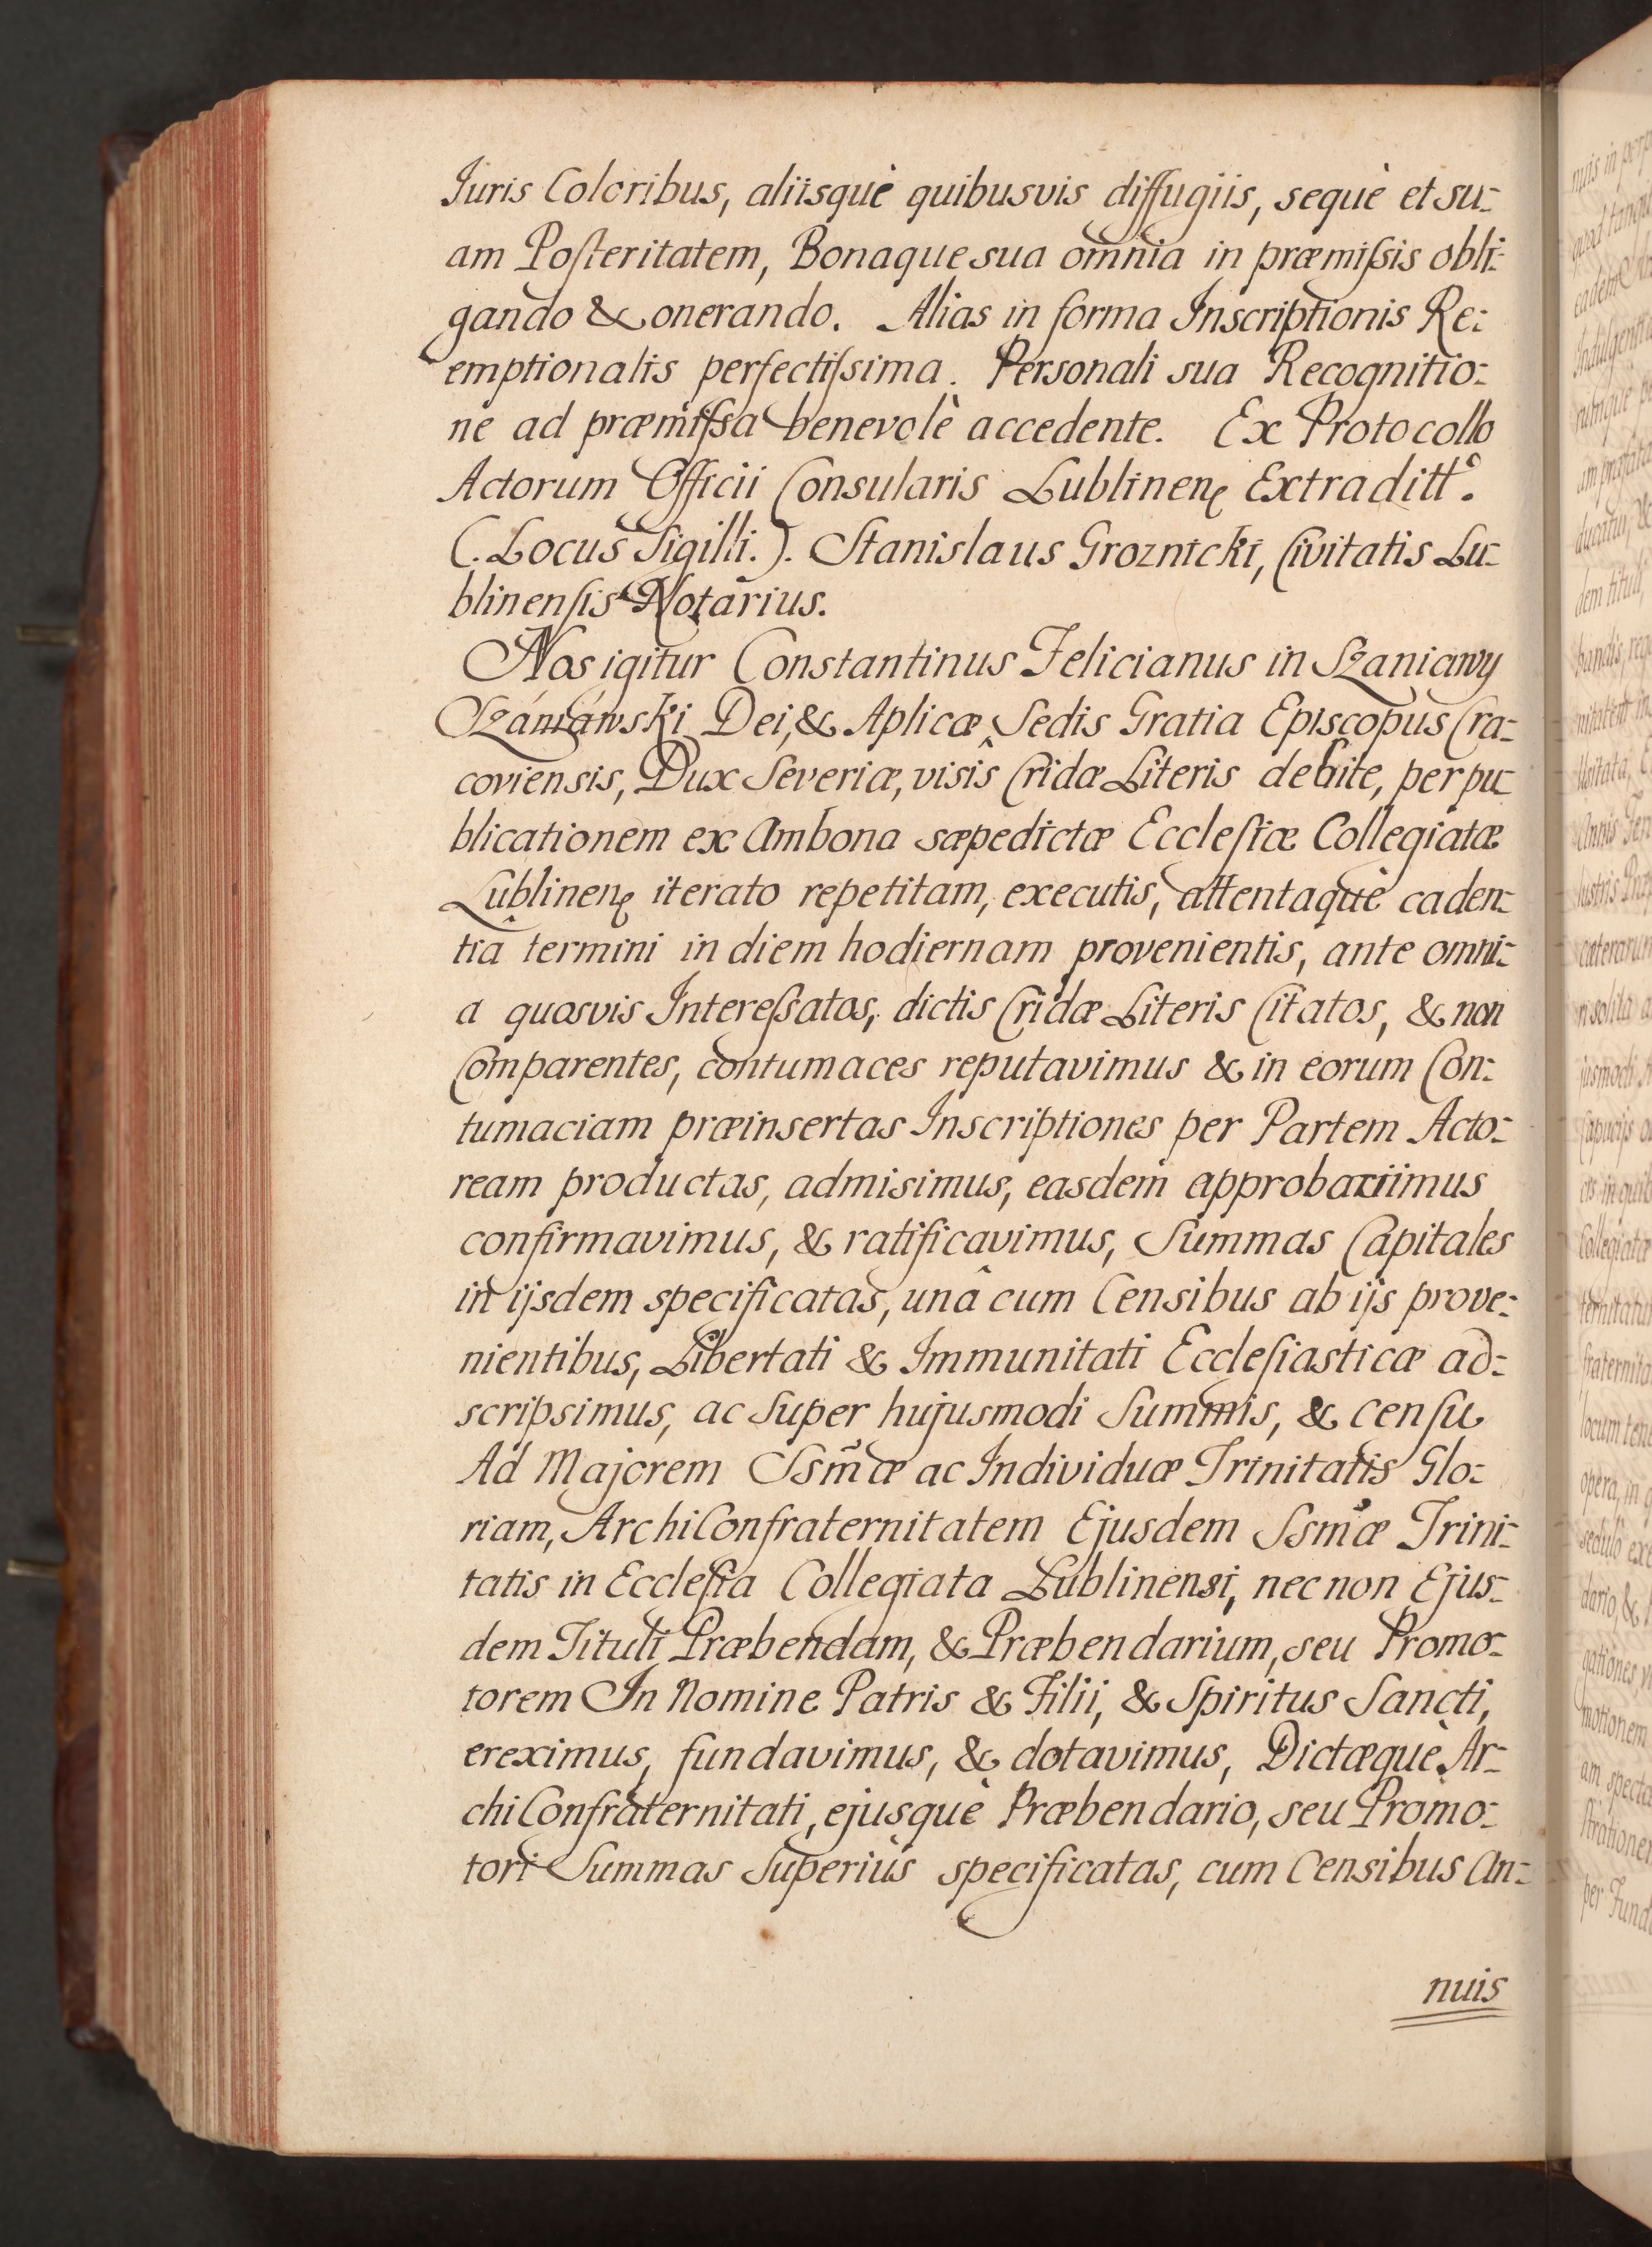 Iuris Coloribus, aliisquè quibusvis diffugiis, sequè et su-
am Posteritatem, Bonaque sua om̃nia in præmissis obli-
gando & onerando. Alias in forma Inscriptionis Re-
emptionalis perfectissima. Personali sua Recognitio-
ne ad præmissa benevolè accedente. Ex Protocollo
Actorum Officii Consularis Lublinenę Extraditt°.
(. Locus Sigilli.). Stanislaus Groznicki, Civitatis Lu-
blinensis Notarius.
Nos igitur Constantinus Felicianus in Szaniawy
Szániáwski Dei, & Aplicæ Sedis Gratia Episcopus Cra-
coviensis, Dux Severiæ, visis Cridæ Literis debite, per pu-
blicationem ex Ambona sæpedictæ Ecclesiæ Collegiatæ
Lublinenę iterato repetitam, executis, attentaquè caden-
tiâ termini in diem hodiernam provenientis, ante omni-
a quosvis Interessatos, dictis Cridæ Literis Citatos, & non
Comparentes, contumaces reputavimus & in eorum Con-
tumaciam præinsertas Inscriptiones per Partem Acto-
ream productas, admisimus, easdem approbavimus
confirmavimus, & ratificavimus, Summas Capitales
in ijsdem specificatas, unâ cum Censibus ab ijs prove-
nientibus, Libertati & Immunitati Ecclesiasticæ ad-
scripsimus, ac super hujusmodi Summis, & censu
Ad Majorem Ssm̃æ ac Individuæ Trinitatis Glo-
riam, ArchiConfraternitatem Ejusdem Ssm̃æ Trini-
tatis in Ecclesia Collegiata Lublinensi, nec non Ejus-
dem Tituli Præbendam, & Præbendarium, seu Promo-
torem In Nomine Patris & Filii, & Spiritus Sancti,
ereximus, fundavimus, & dotavimus, Dictæquè Ar-
chiConfraternitati, ejusquè Præbendario, seu Promo-
tori Summas Superiùs specificatas, cum Censibus An-
nuis